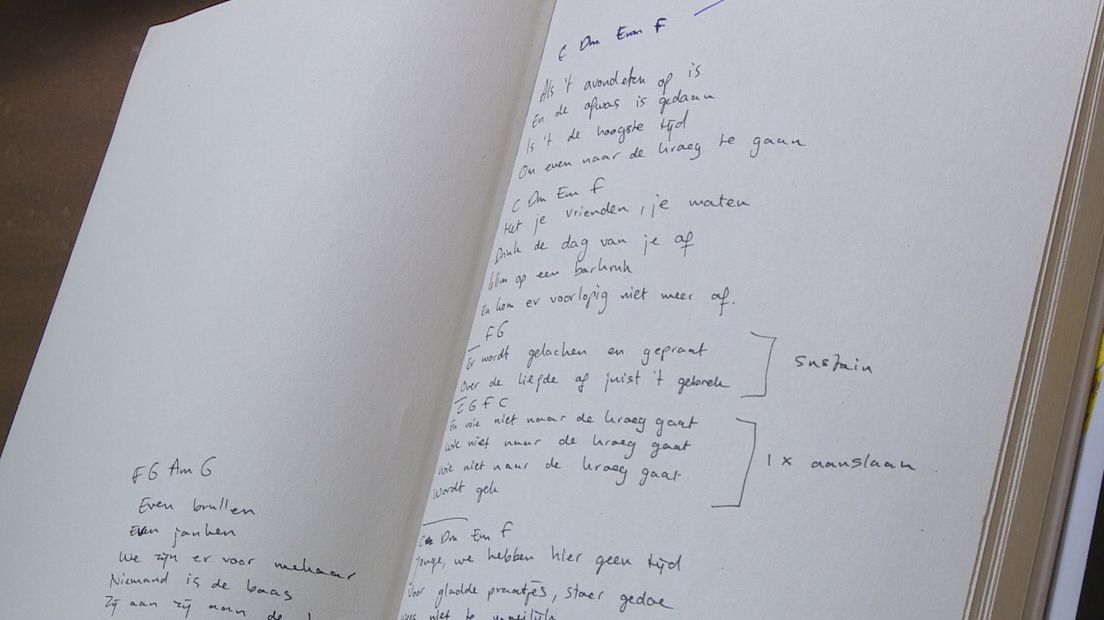 F G Am G
Even brullen
Even janken
We zijn er voor mekaar
Niemand is de baas
Zij aan zij aan de
C Dm Em F
Als 't avondeten op is
En de afwas is gedaan
Is 't de hoogste tijd
Om even naar de kroeg te gaan
C Dm Em F
Met je vrienden, je maten
Drink de dag van je af
Klim op een barkruk
En kom er voorlopig niet meer af.
F G
Er wordt gelachen en gepraat
Over de liefde of juist 't gebrek
sustain
C G F C
En wie niet naar de kroeg gaat
Wie niet naar de kroeg gaat
Wie niet naar de kroeg gaat
Wordt gek
1 x aanslaan
C Dm Em F
Jonge, we hebben hier geen tijd
Voor gladde praatjes, stoer gedoe
niet te